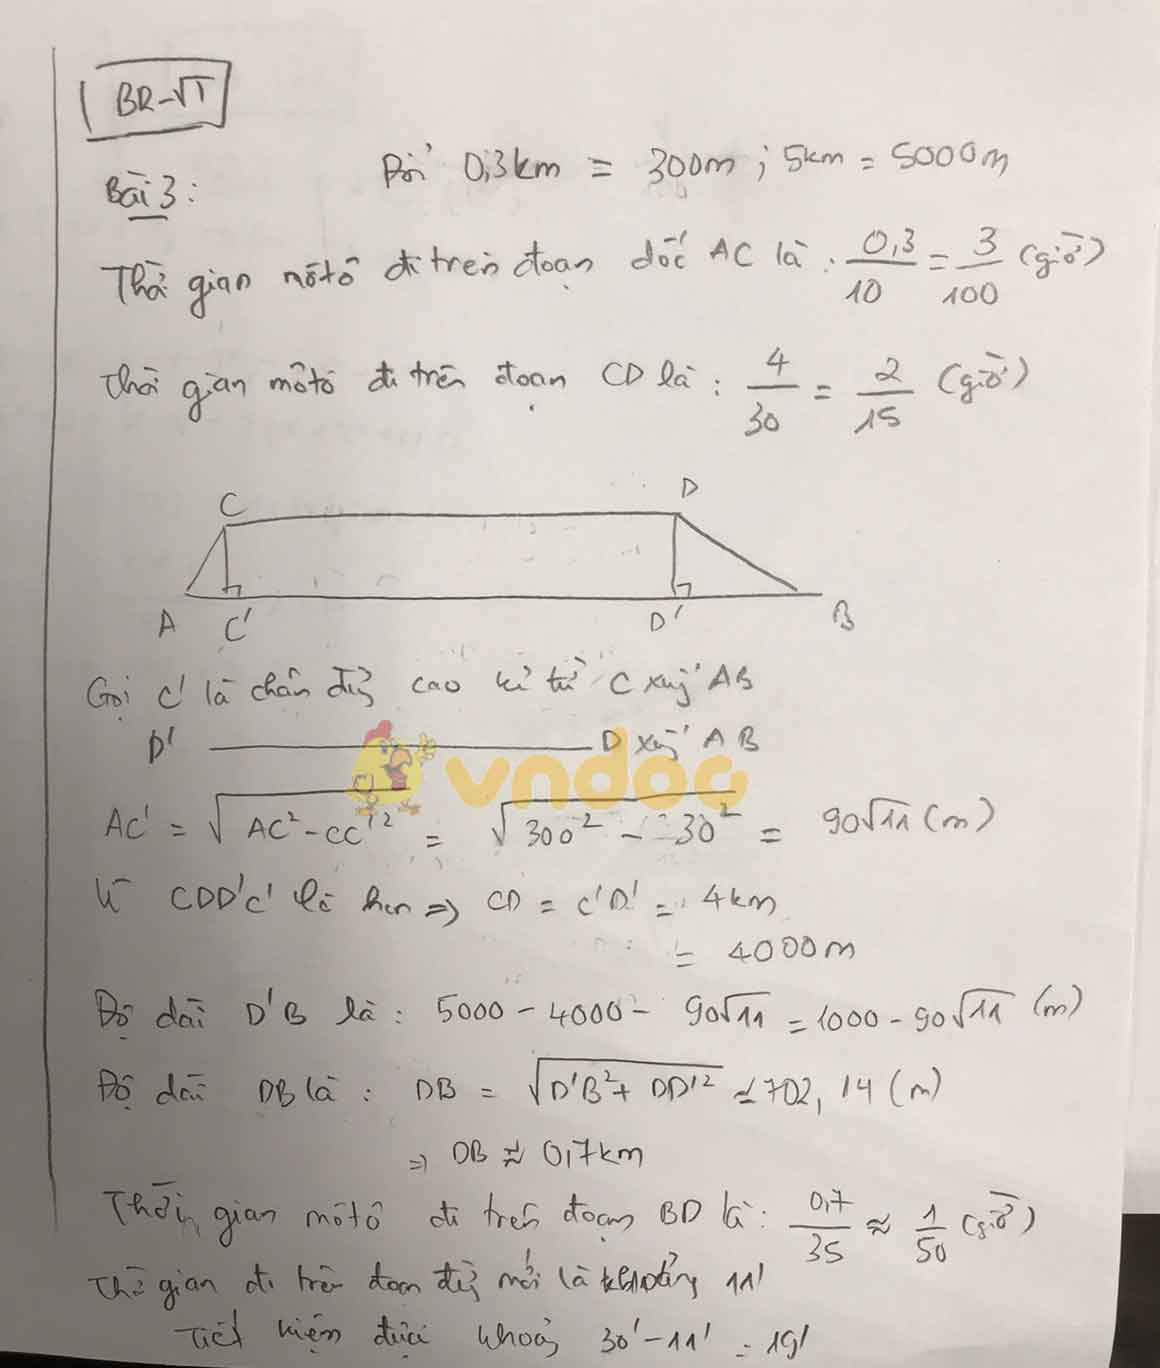 BR-VT
Đổi 0,3km = 300m ; 5km = 5000m
Bài 3 :
Thời gian môtô đi trên đoạn dốc AC là : 0,3/10 = 3/100 (giờ)
Thời gian môtô đi trên đoạn CD là : 4/30 = 2/15 (giờ)
C D
A C' D' B
Gọi C' là chân đg cao kẻ từ C xuống AB
D' ——— D xuống AB
vndoc
AC' = √(AC² - CC'²) = √(300² - 30²) = 90√11 (m)
Vì CDD'C' là hcn => CD = C'D' = 4km
= 4000m
Độ dài D'B là : 5000 - 4000 - 90√11 = 1000 - 90√11 (m)
Độ dài DB là : DB = √(D'B² + DD'²) ≈ 702,14 (m)
=> DB ≈ 0,7km
Thời gian môtô đi trên đoạn BD là : 0,7/35 ≈ 1/50 (giờ)
Thời gian đi trên đoạn đg mới là khoảng 11'
Tiết kiệm được khoảng 30' - 11' = 19'